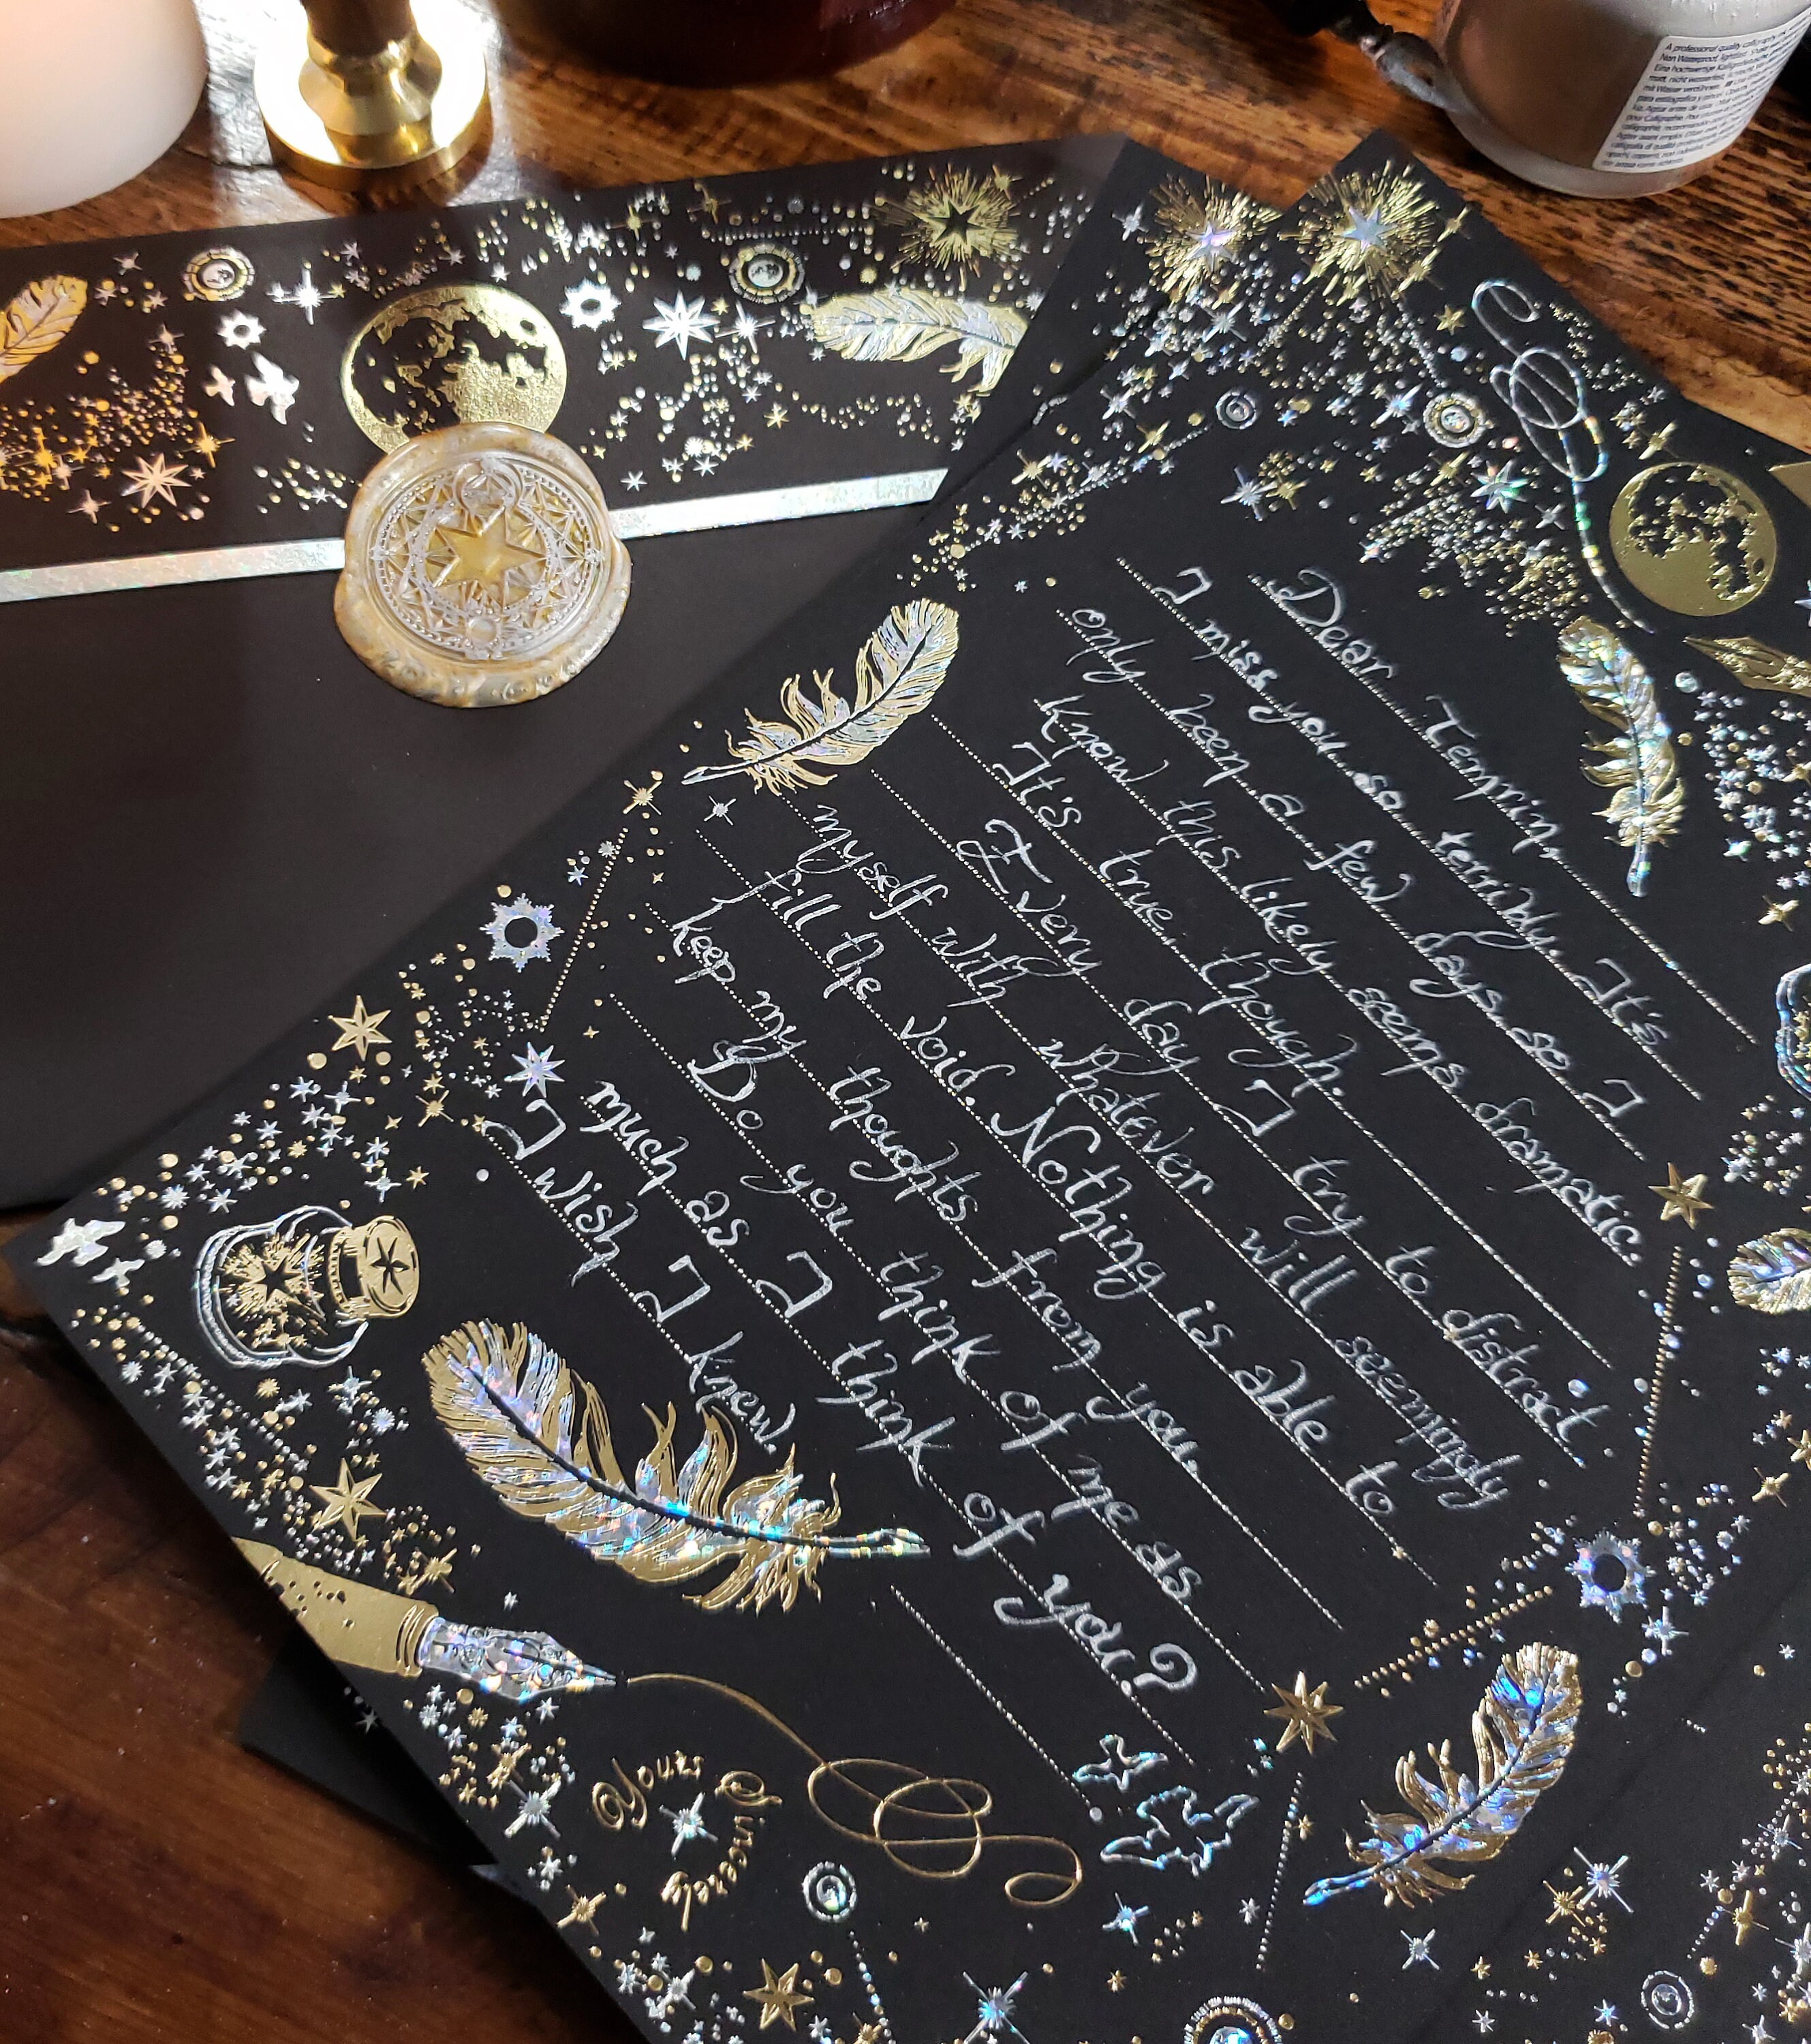 A professional quality calligraphy
Non Waterproof, lightfast. Shake
Eine hochwertige
matt, nicht
mit Wasser verdünnen.
Dear Temprin,
I miss you so terribly. It's
only been a few days so I
know this likely seems dramatic.
It's true though.
Every day I try to distract
myself with whatever will seemingly
fill the void. Nothing is able to
keep my thoughts from you.
Do you think of me as
much as I think of you?
I wish I knew.
Yours Sincerely